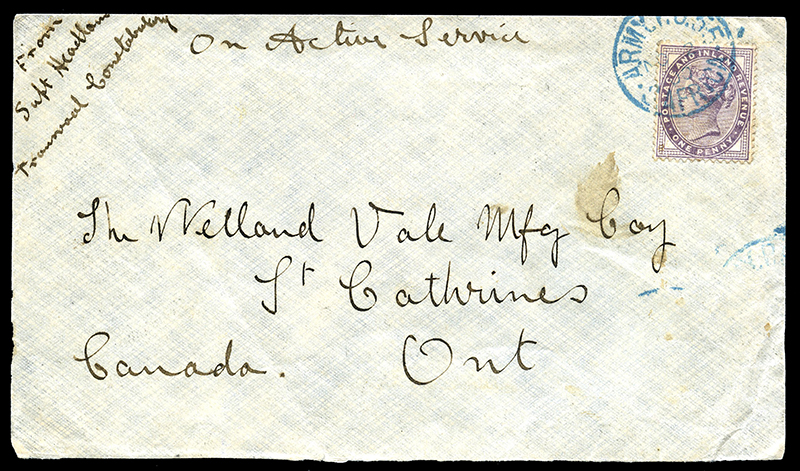 From
Supt Headlam
Transvaal Constabulary
On Active Service
ARMY P.O.
AFRICA
POSTAGE AND INLAND REVENUE
ONE PENNY
The Welland Vale Mfg Coy
St Cathrines
Canada. Ont